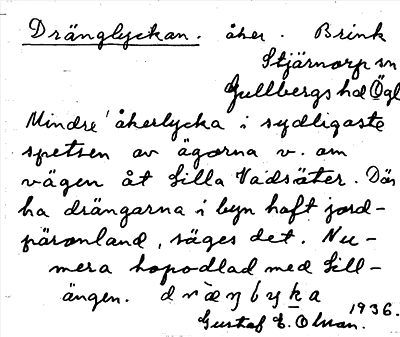 Dränglyckan. åker. Brink
Stjärnorp sn
Gullbergs hd Ögl
Mindre åkerlycka i sydligaste
spetsen av ägorna v. om
vägen åt Lilla Vadsäter. Där
ha drängarna i byn haft jord-
päronland, säges det. Nu-
mera hopodlad med Lill-
ängen.
1936.
Gustaf E. Olsson.